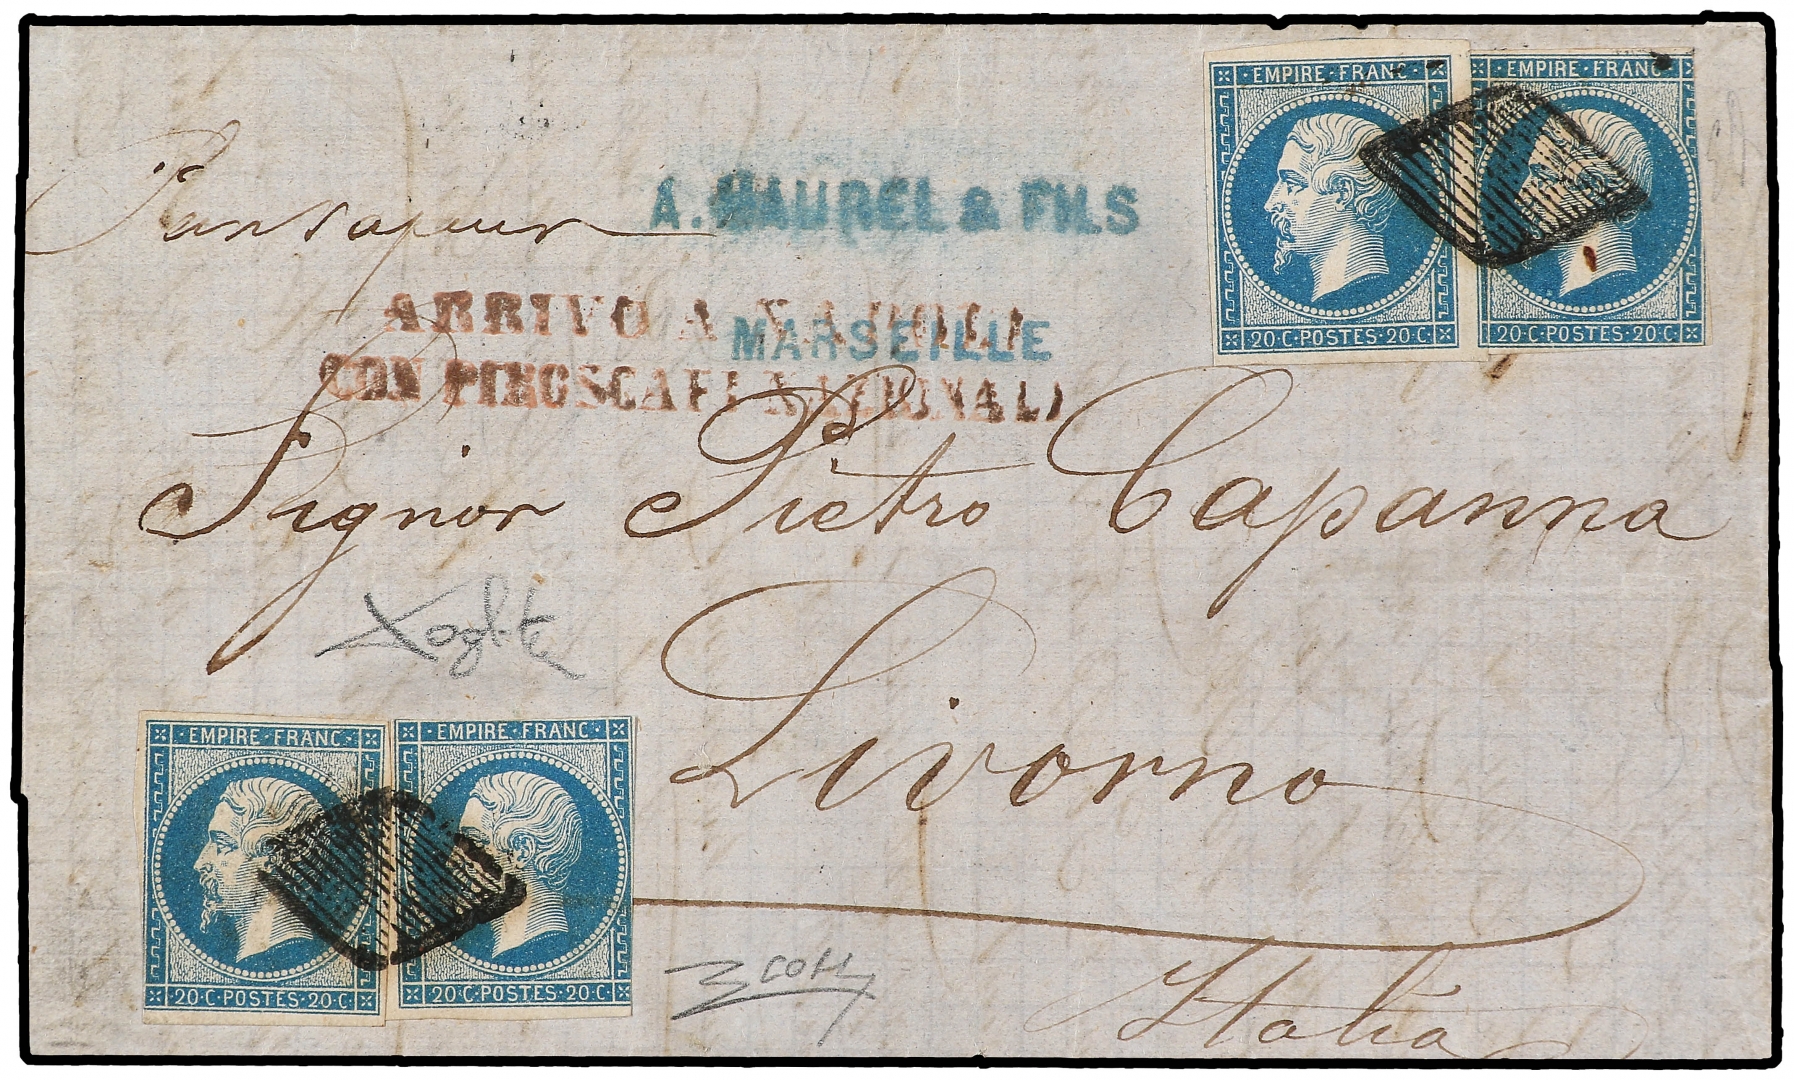 EMPIRE·FRANC·
EMPIRE·FRANC·
20·C·POSTES·20·C·
20·C·POSTES·20·C·
Par vapeur
A. MAUREL & FILS
MARSEILLE
ARRIVO A NAPOLI
CON PIROSCAFI NAZIONALI
Signor Pietro Capanna
Livorno
Italia
EMPIRE·FRANC·
EMPIRE·FRANC·
20·C·POSTES·20·C·
20·C·POSTES·20·C·